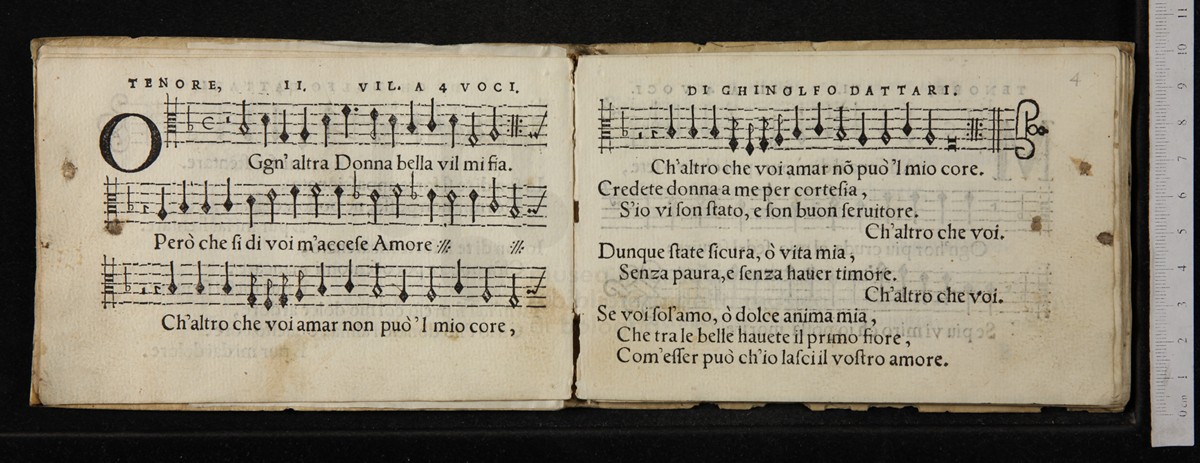 TENORE, II. VIL. A 4 VOCI.
OGgn' altra Donna bella vil mi ſia.
Però che ſi di voi m'acceſe Amore
Ch'altro che voi amar non può 'l mio core,
DI GHINOLFO DATTARI. 4
Ch'altro che voi amar nõ può 'l mio core.
Credete donna a me per corteſia,
S'io vi ſon ſtato, e ſon buon ſeruitore.
Ch'altro che voi.
Dunque ſtate ſicura, ò vita mia,
Senza paura, e ſenza hauer timore.
Ch'altro che voi.
Se voi ſol'amo, ò dolce anima mia,
Che tra le belle hauete il primo fiore,
Com'eſſer può ch'io laſci il voſtro amore.
0 cm 1 2 3 4 5 6 7 8 9 10 11